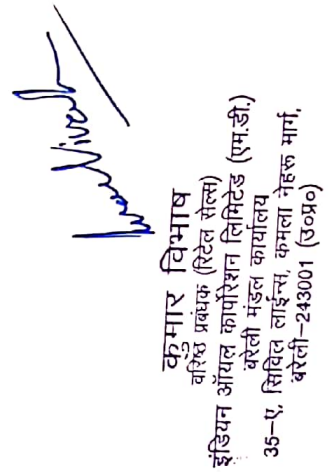 कुमार विभाष
वरिष्ठ प्रबंधक (रिटेल सेल्स)
इंडियन ऑयल कार्पोरेशन लिमिटेड (एम.डी.)
बरेली मंडल कार्यालय
35-ए, सिविल लाईन्स, कमला नेहरू मार्ग,
बरेली-243001 (उ०प्र०)